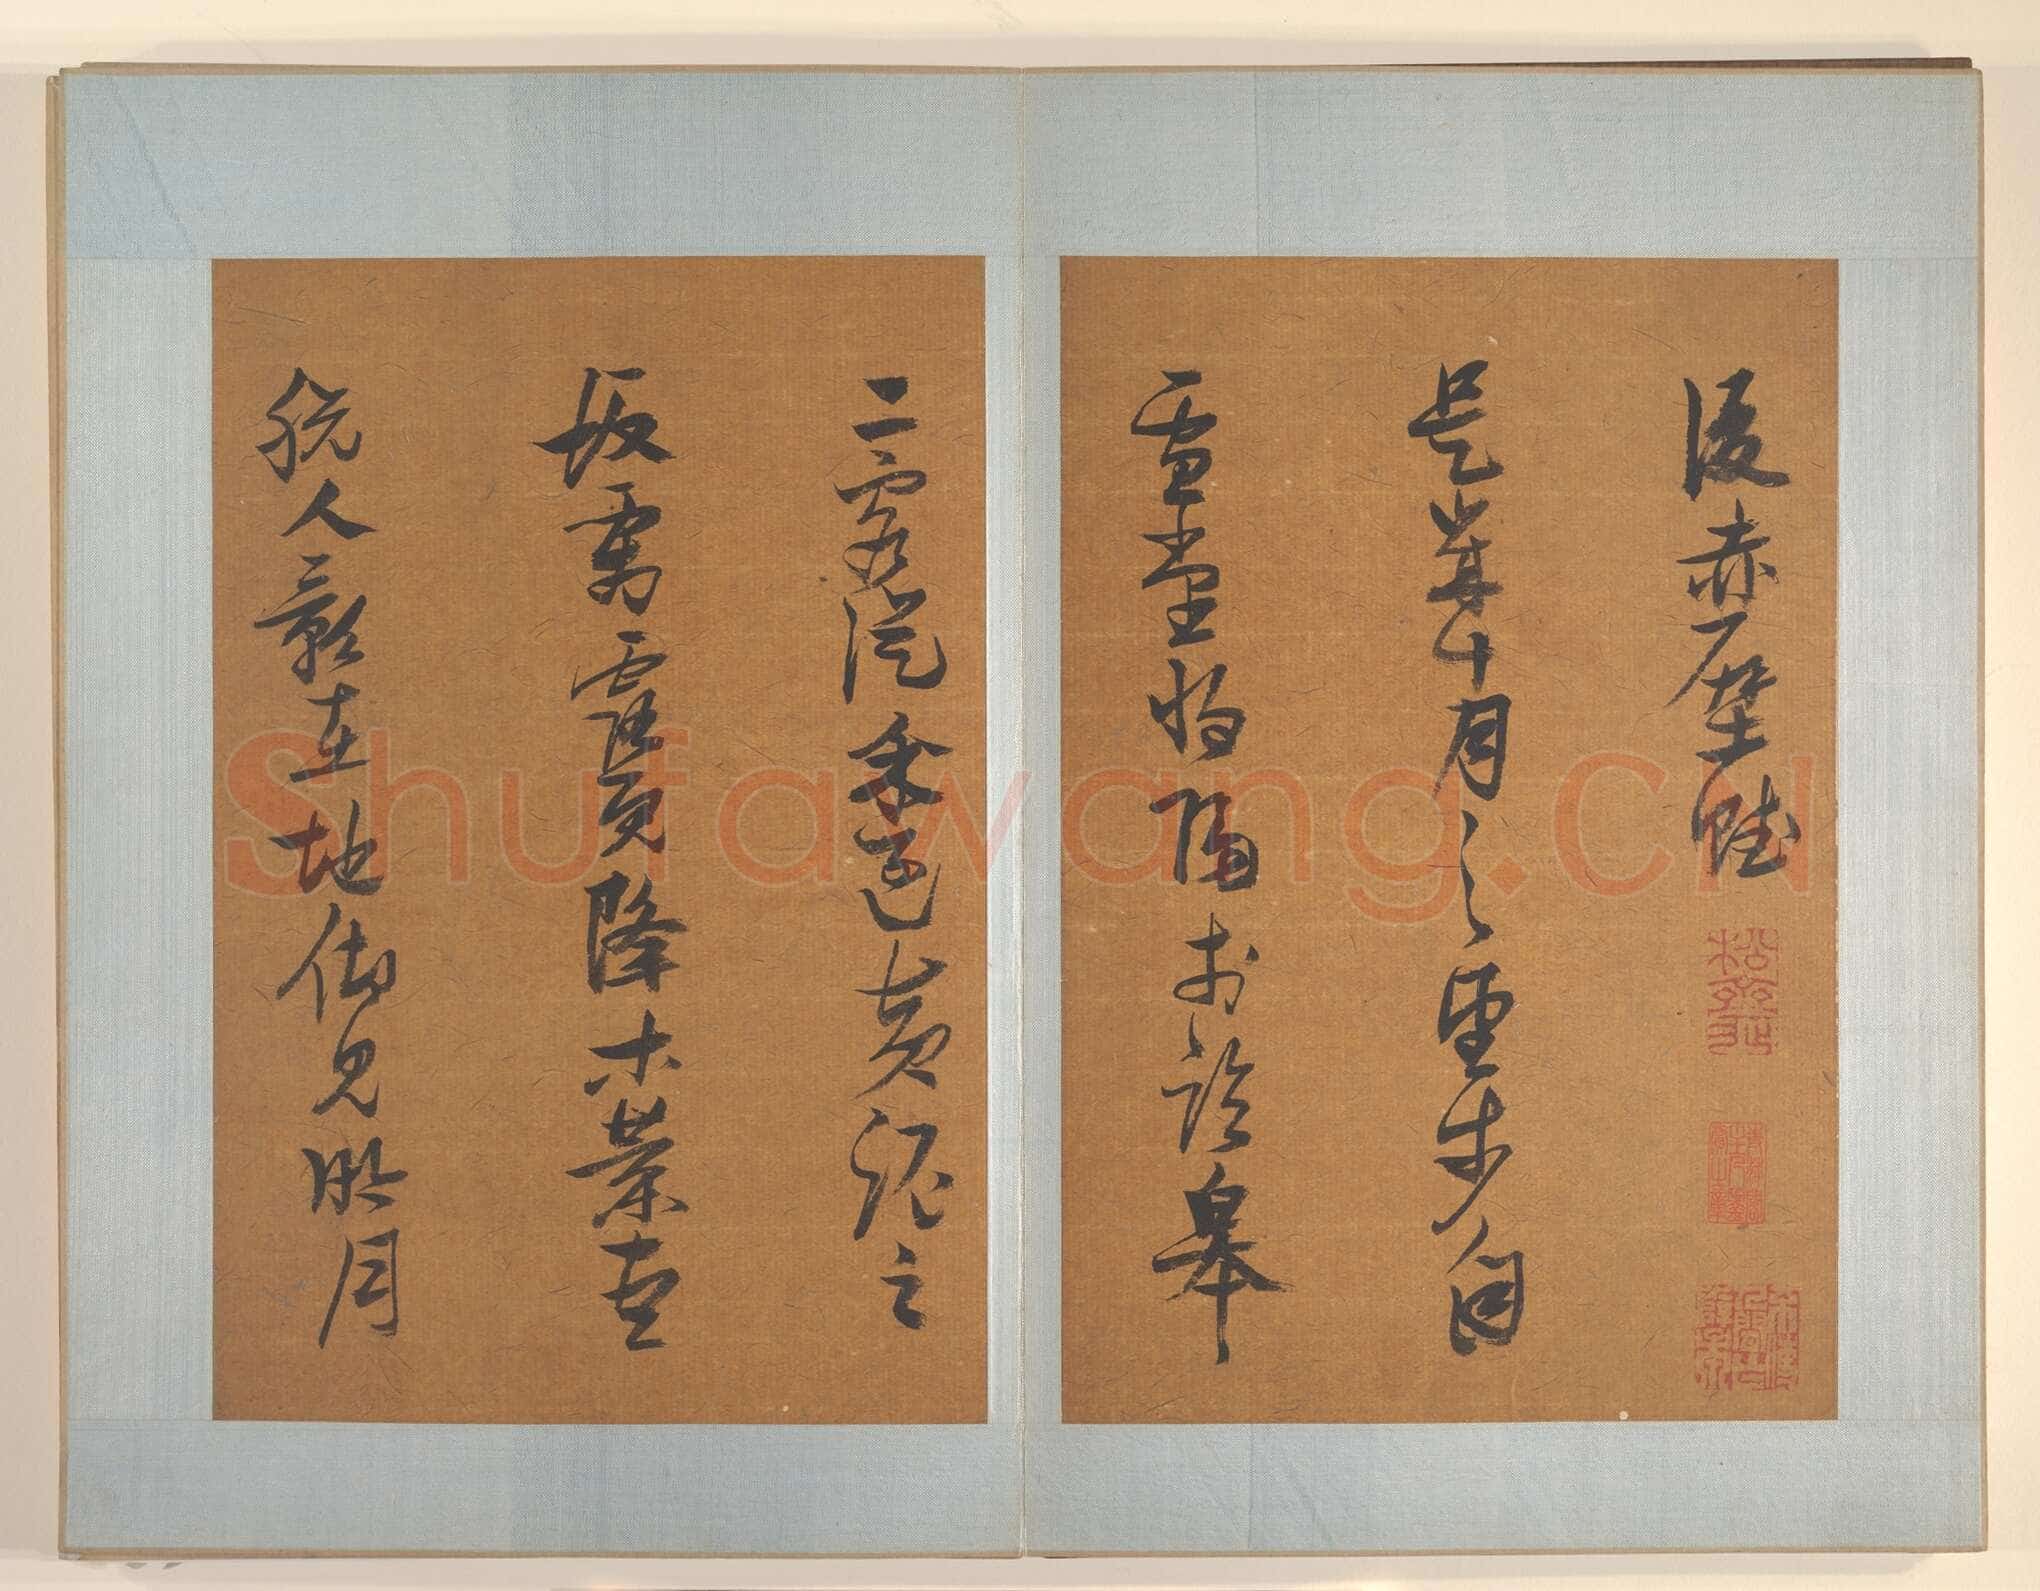 後赤壁賦
是歲十月之望步自
雪堂將歸於臨皋
二客從余過黃泥之
坂霜露既降木葉盡
脫人影在地仰見明月
Shufawang.CN